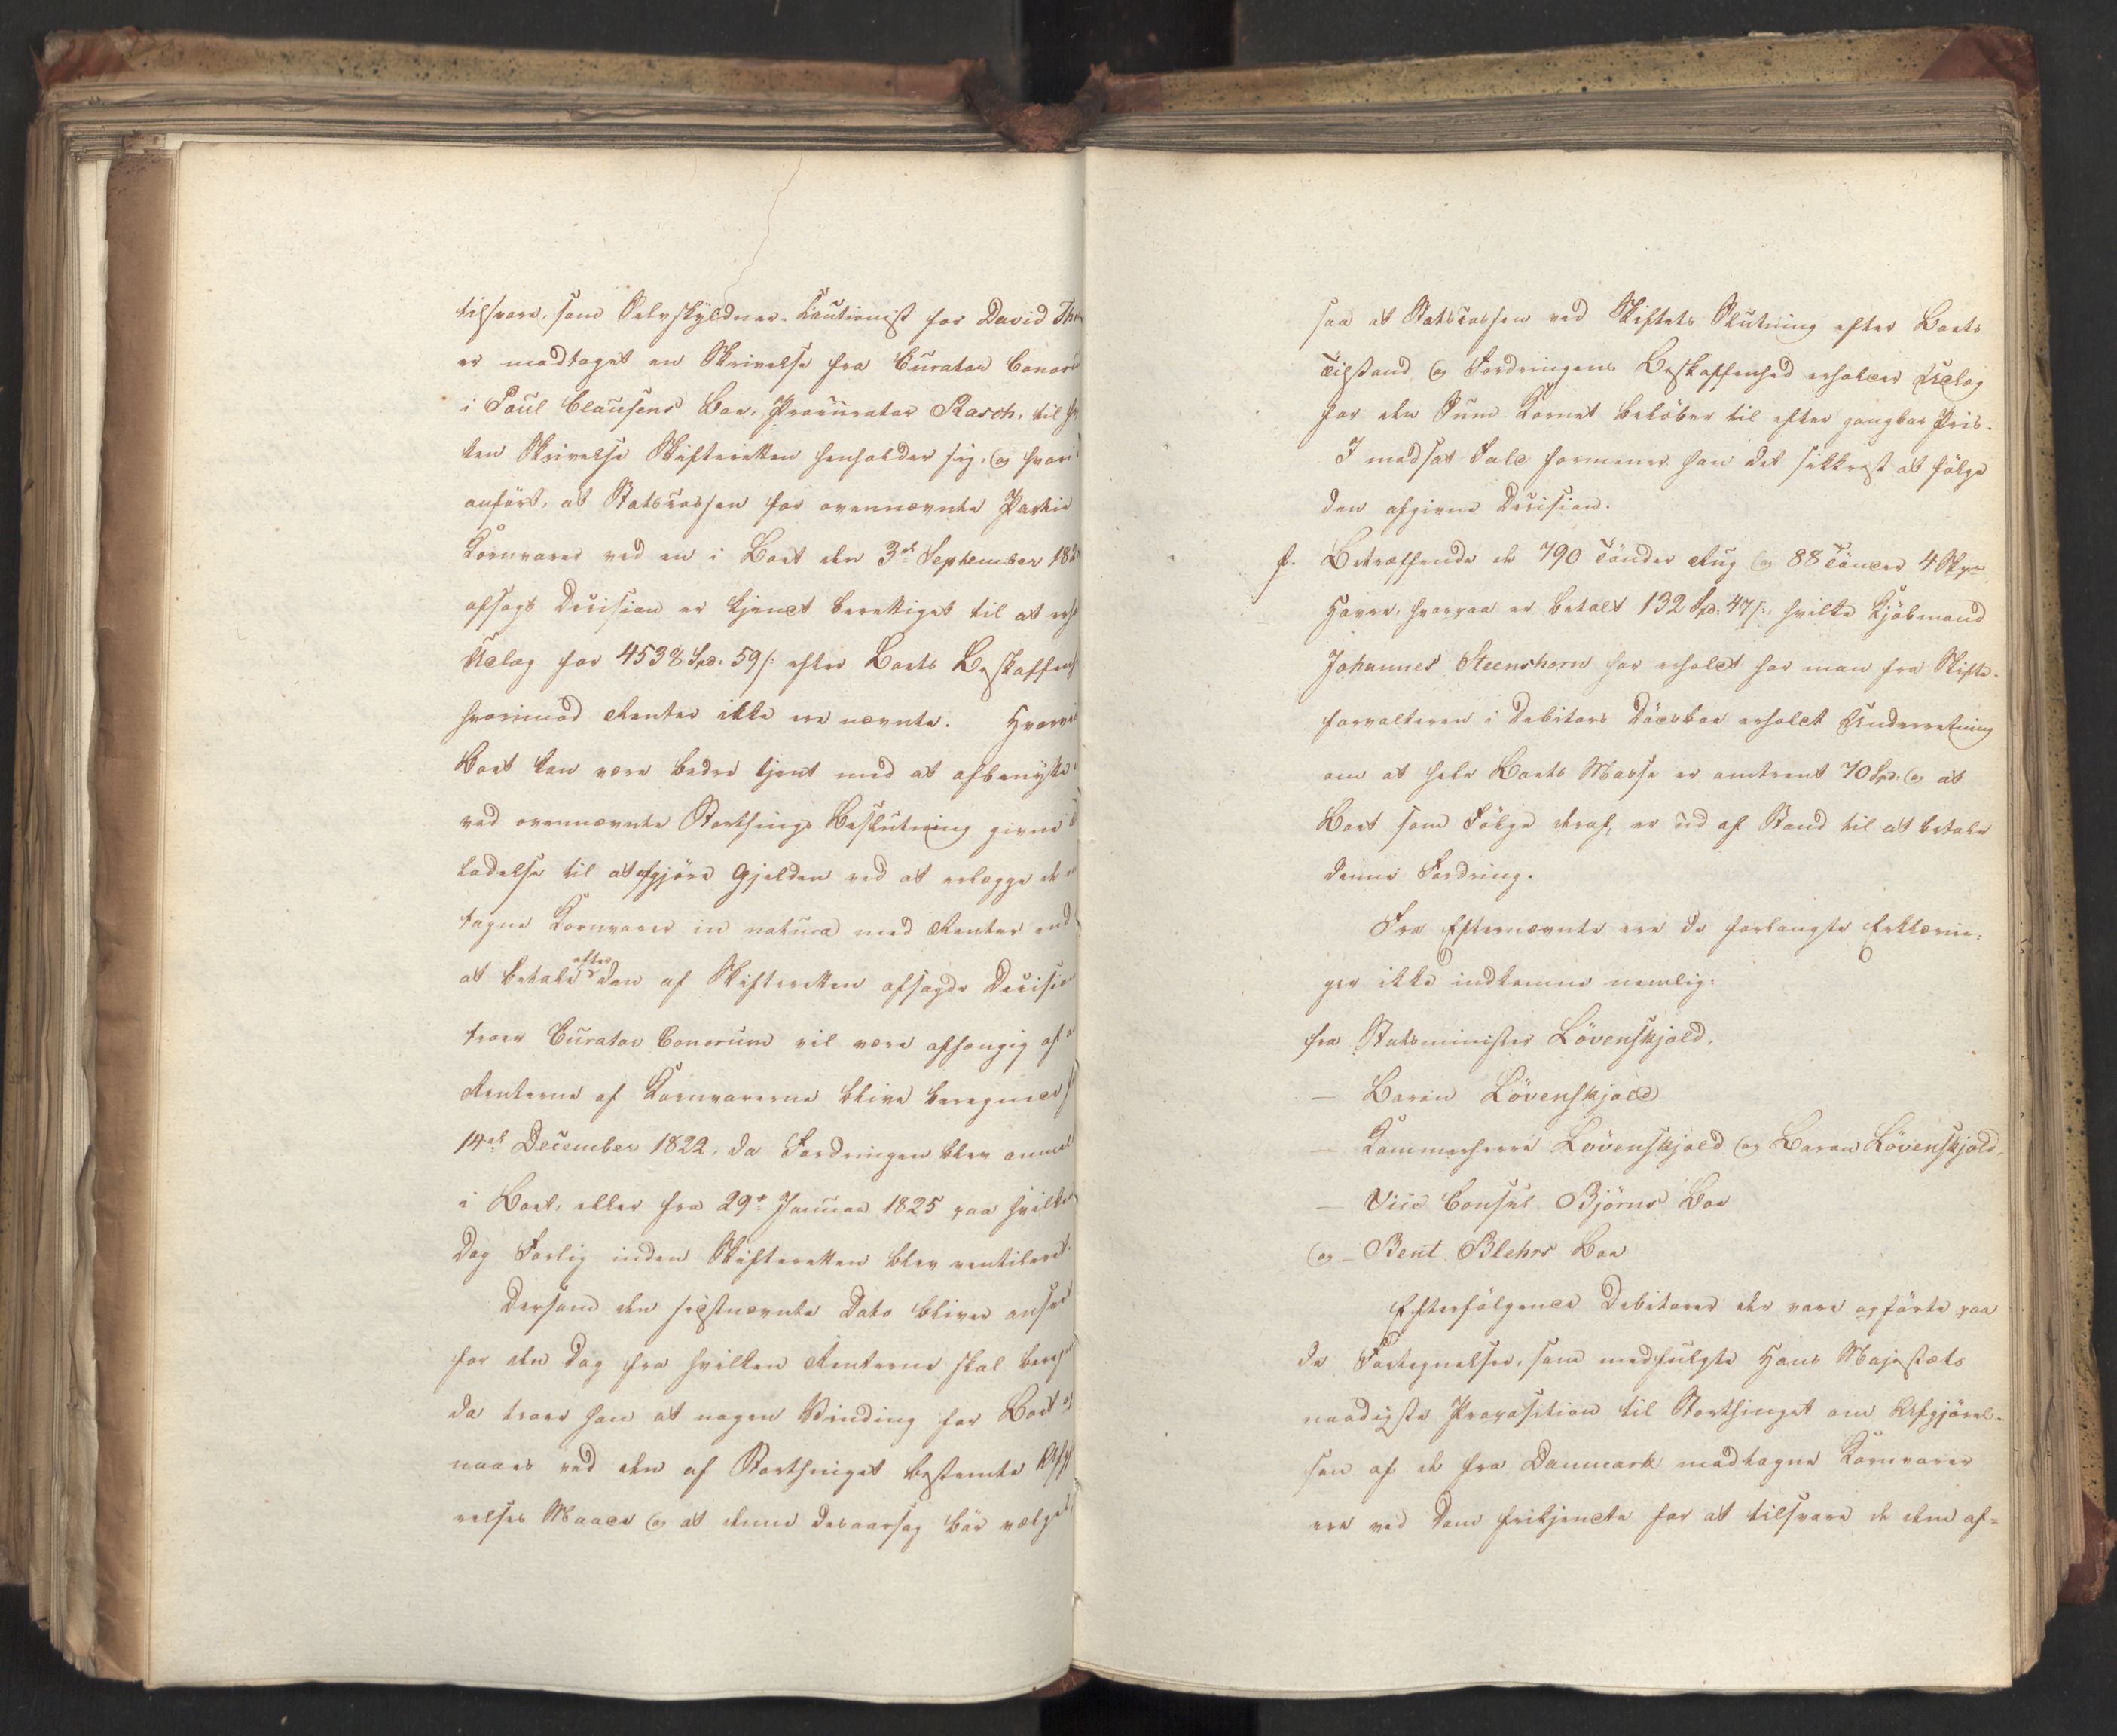 tilsvare, som Selvskyldner-Cautionist for David Tho
er modtaget en Skrivelse fra Curator bonoru
i Poul Clausens Boe, Procurator Rasch, til hv
ken Skrivelse Skifteretten henholder sig, og hvori
anført, at Statscassen for ovennævnte Partie
Kornvarer ved en i Boet den 3de September 182
afsagt Decision er kjendt berettiget til at erh
Udlæg for 4538 Spd: 59 s: efter Boets Beskaffenh
hvorimod Renter ikke ere nævnte. Hvorvi
Boet kan være bedre tjent med at afbenytte
ved ovennævnte Storthings Beslutning givne
ladelse til at afgjøre Gjelden ved at erlægge de
tagne Kornvarer in natura med Renter end
at betale efter den af Skifteretten afsagde Decisio
troer Curator bonorum vil være afhængig af
Renterne af Kornvarerne blive beregnede f
14de December 1822, da Fordringen blev anmel
i Boet, eller fra 29de Januar 1825 paa hvilke
Dag Forlig inden Skifteretten blev ventileret.
Dersom den sidstnævnte Dato bliver anseet
for den Dag fra hvilken Renterne skal bereg
da troer han at nogen Vinding for Boet
naaes ved den af Storthinget bestemte Afgj
relses Maade og at denne desaarsag bør vælges
saa at Statscassen ved Skiftets Slutning efter Boets
Tilstand og Fordringens Beskaffenhed erholder Udlæg
for den Sum Kornet beløber til efter gangbar Priis.
I modsat Fald formener han det sikkrest at følge
den afgivne Decision.
f. Betræffende de 790 Tønder Rug og 88 Tønder 4 Skpr
Havre, hvorpaa er betalt 132 Spd: 47 s:, hvilke Kjøbmand
Johannes Steenshorn har erholdt har man fra Skifte-
forvalteren i Debitors Dødsboe erholdt Underretning
om at hele Boets Masse er omtrent 70 Spd: og at
Boet som Følge deraf, er ud af Stand til at betale
denne Fordring.
Fra Efternævnte ere de forlangte Erklærin-
ger ikke indkomne nemlig:
fra Statsminister Løvenskjold,
— Baron Løvenskjold
— Kammerherre Løvenskjold og Baron Løvenskjold,
— Vice Consul Bjørns Boe
og — Bent Blehrs Boe
Efterfølgende Debitorer der vare opførte paa
de Fortegnelser, som medfulgte Hans Majestæts
naadigste Proposition til Storthinget om Afgjørel-
sen af de fra Danmark modtagne Kornvarer
ere ved Dom frikjendte for at tilsvare de dem af-